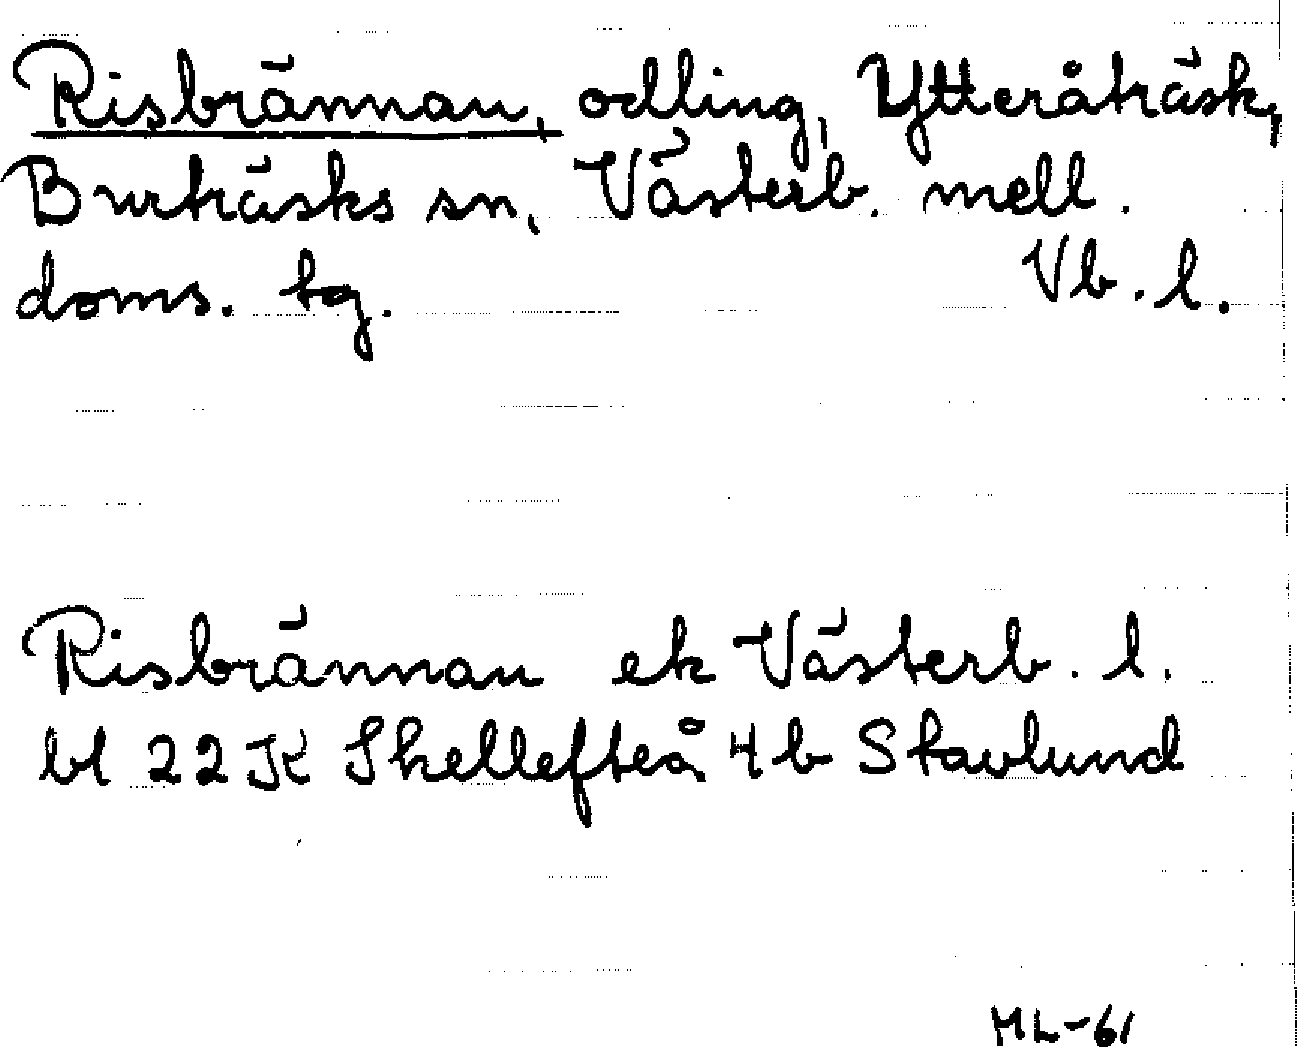 Risbrännan, odling, Ytteråträsk,
Burträsks sn, Västerb. mell.
doms. tg. Vb. l.
Risbrännan ek Västerb. l.
bl 22K Skellefteå 4b Stavlund
ML-61